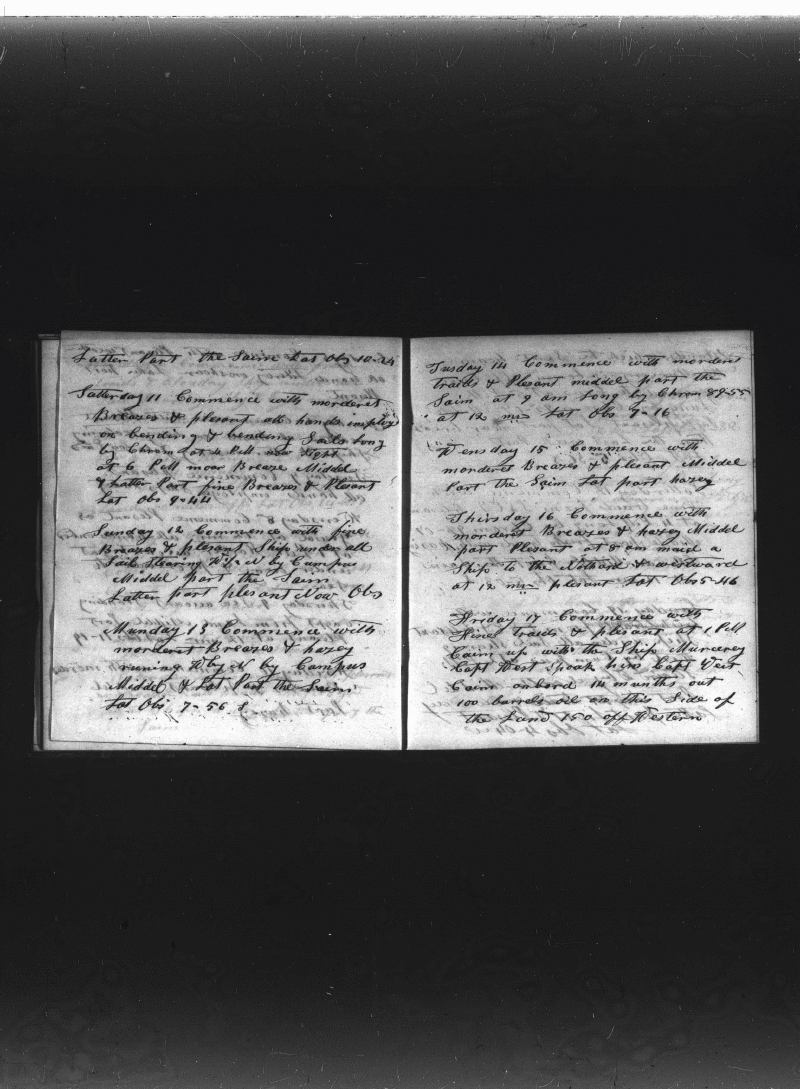 Latter Part the Saim Lat Obs 10-24
Satterday 11 Commence with morderet
Breazes & plesant all hands imploy
on bending & bending Sails Long
by Chrom at 4 P.M.
at 6 P.M moar Breaze Middel
& Latter Part fine Breazes & Plesant
Lat Obs 9-44
Sunday 12 Commence with fine
Breazes & plesant Ship under all
Sail Stearing W by N by Campus
Middel part the Saim
Latter part plesant Now Obs
Munday 13 Commence with
morderet Breazes & hazey
runing W by N by Campus
Middel & Lat Part the Saim
Lat Obs 7-56 S
Tusday 14 Commence with morderet
traids & Plesant middel part the
Saim at 9 am Long by Chrom 89-55
at 12 mr Lat Obs 7-16
Wensday 15 Commence with
morderet Breazes & plesant Middel
Part the Saim Lat part hazey
Thirsday 16 Commence with
morderet Breazes & hazey Middel
part Plesant at 8 am maid a
Ship to the Nothard & westward
at 12 mr plesant Lat Obs 5-46
Friday 17 Commence with
fine traids & plesant at 1 P.M
Caim up with the Ship Murcerey
Capt West Spook hir Capt West
Caim onbord 14 months out
100 barrels oil on this Side of
the Land 150 off Western